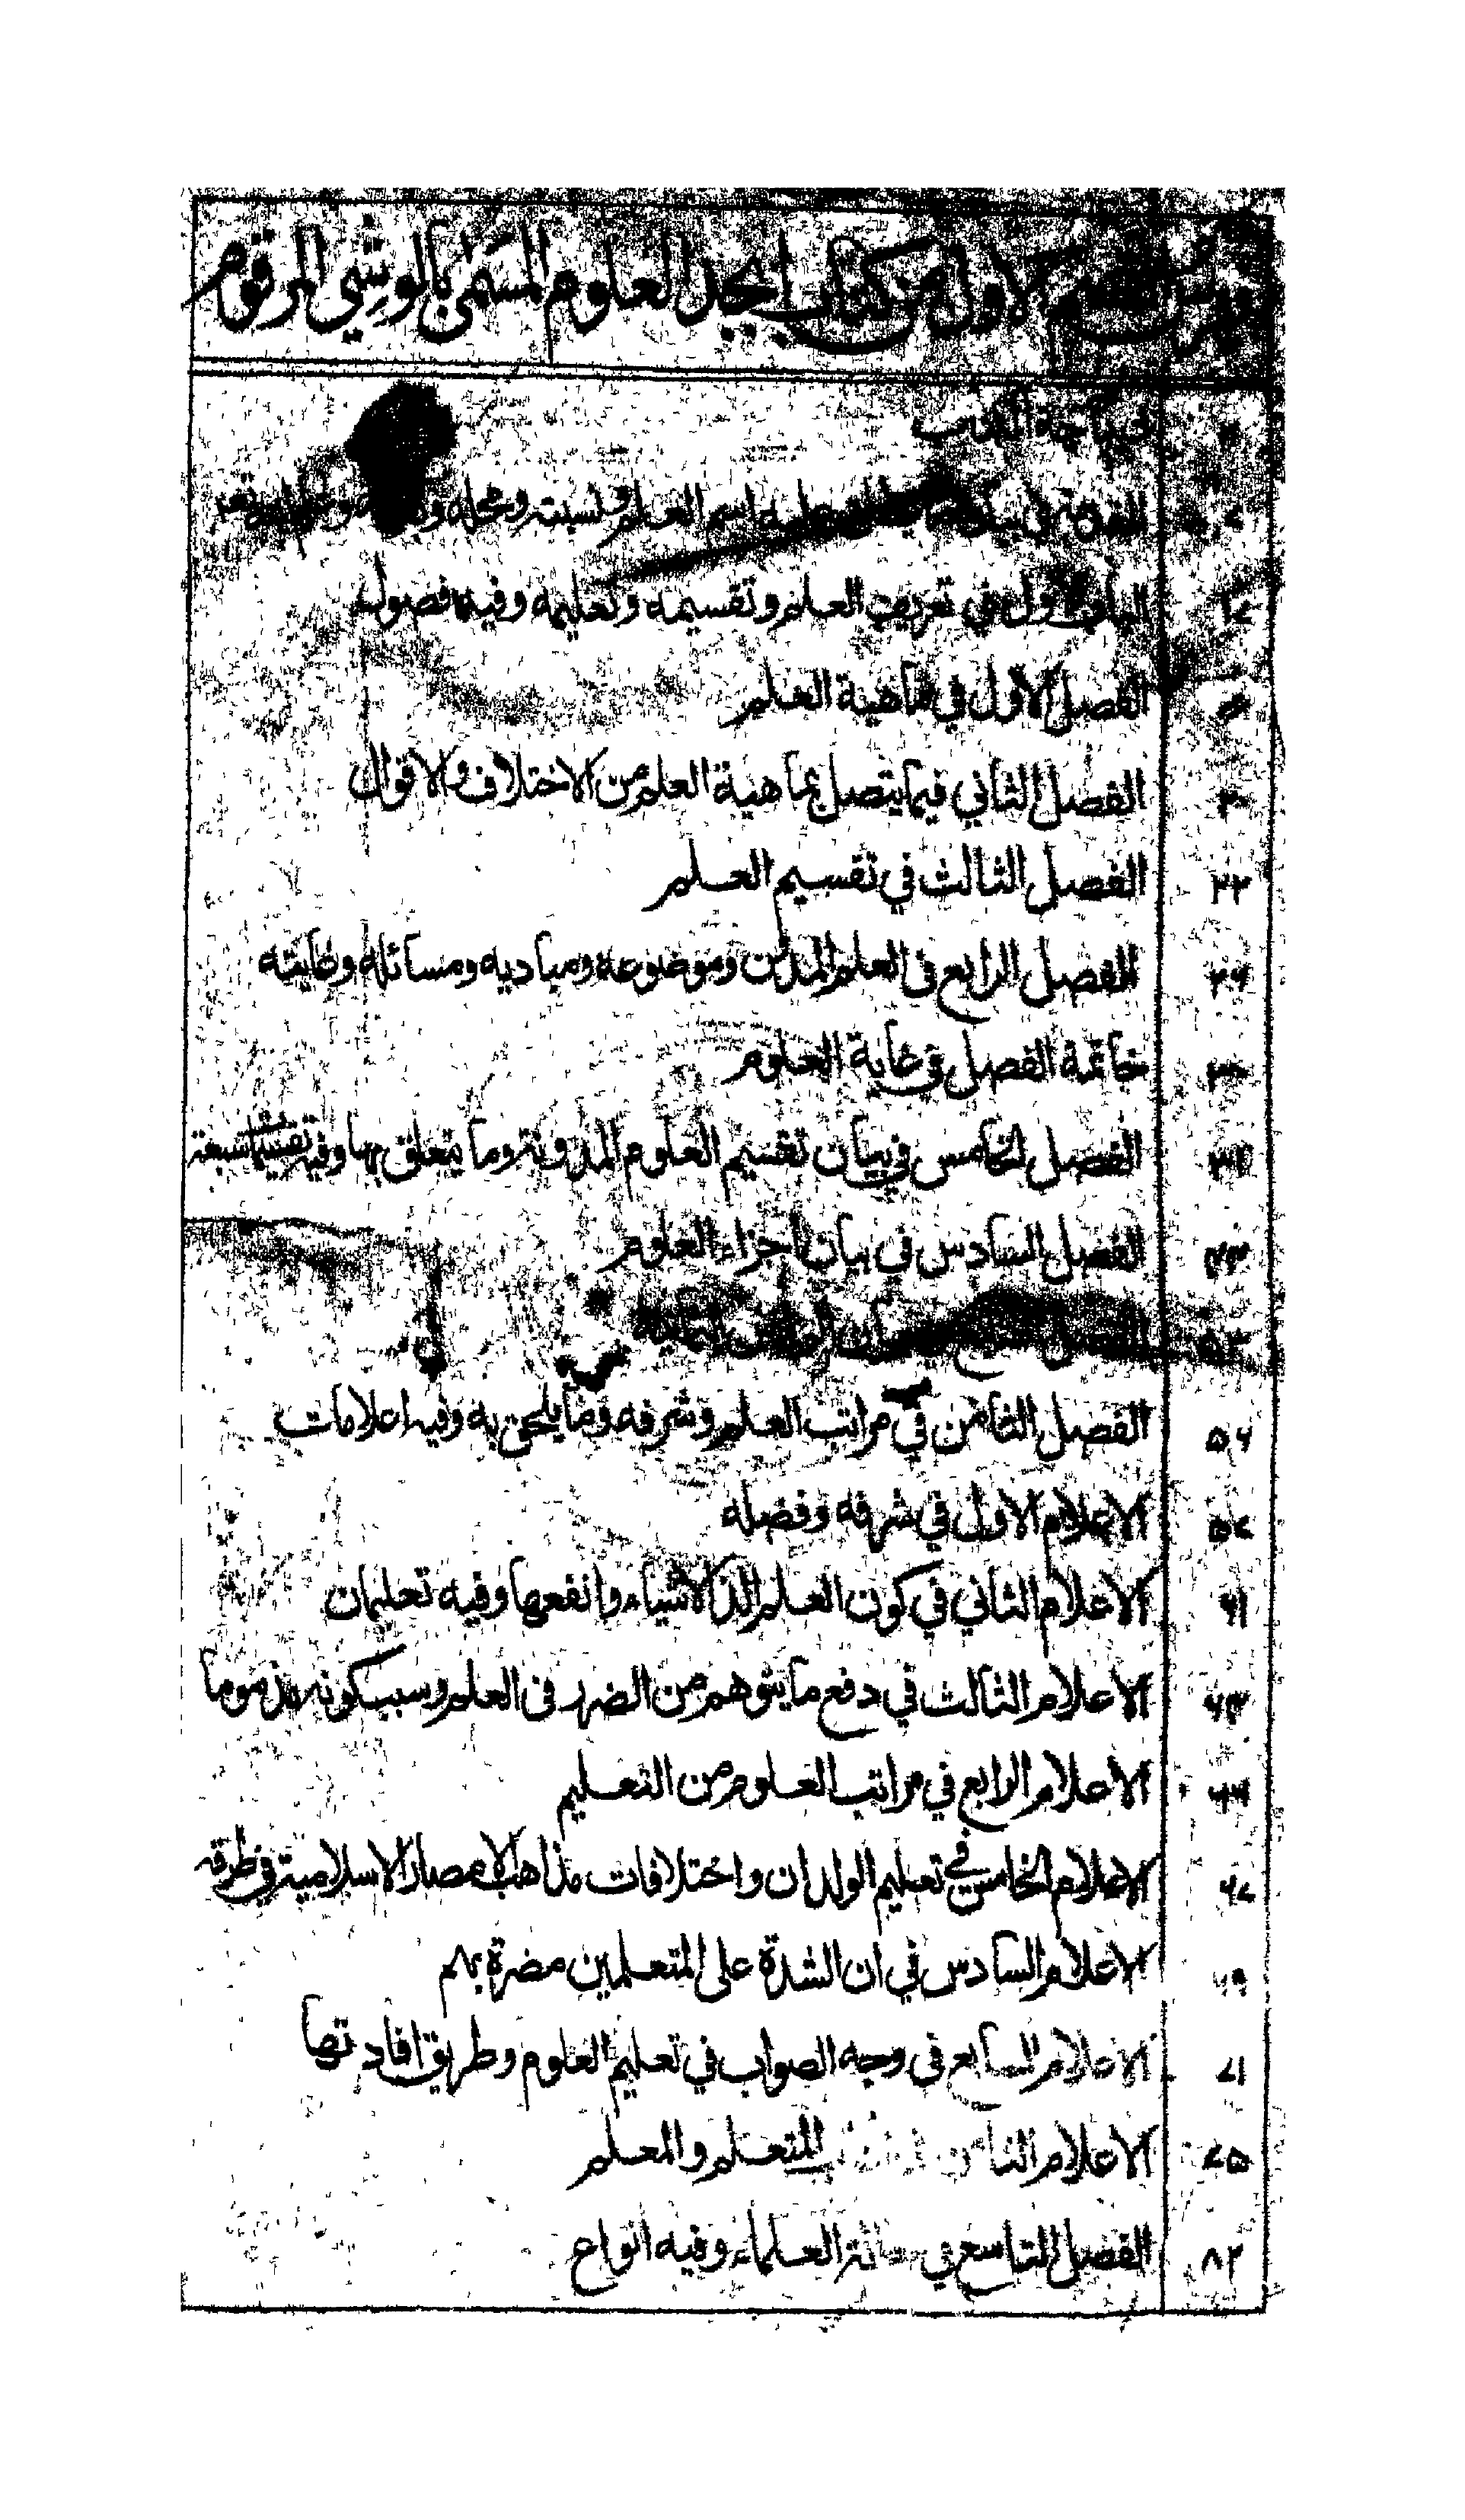 فهرس القسم الاول من كتاب ابجد العلوم المسمى بالوشي المرقوم
ديباجة الكتاب
المقدمة في بيان اسم العلم ونسبته ومحله
الباب الاول في تعريف العلم وتقسيمه وتعليمه وفيه فصول
الفصل الاول في ماهية العلم
٢٠ الفصل الثاني فيما يتصل بماهية العلم من الاختلاف والاقوال
٢٣ الفصل الثالث في تقسيم العلم
٢٦ الفصل الرابع في العلم المدون وموضوعه ومباديه ومسائله وغايته
خاتمة الفصل في غاية العلوم
الفصل الخامس في بيان تقسيم العلوم المدونة وما يتعلق بها وفيه تقسيمات سبعة
الفصل السادس في بيان اجزاء العلوم
٥٣ الفصل
٥٦ الفصل الثامن في مراتب العلم وشرفه وما يلحق به وفيه اعلامات
٥٧ الاعلام الاول في شرفه وفضله
٦١ الاعلام الثاني في كون العلم الذ الاشياء وانفعها وفيه تعليمان
٦٣ الاعلام الثالث في دفع ما يتوهم من الضرر في العلم وسبب كونه مذموما
الاعلام الرابع في مراتب العلوم من التعليم
٦٧ الاعلام الخامس في تعليم الولدان واختلافات مذاهب الامصار الاسلامية في طرقه
٦٩ الاعلام السادس في ان الشدة على المتعلمين مضرة بهم
٧١ الاعلام السابع في وجه الصواب في تعليم العلوم وطريق افادتها
٧٥ الاعلام الثامن المتعلم والمعلم
٨٢ الفصل التاسع في العلماء وفيه انواع